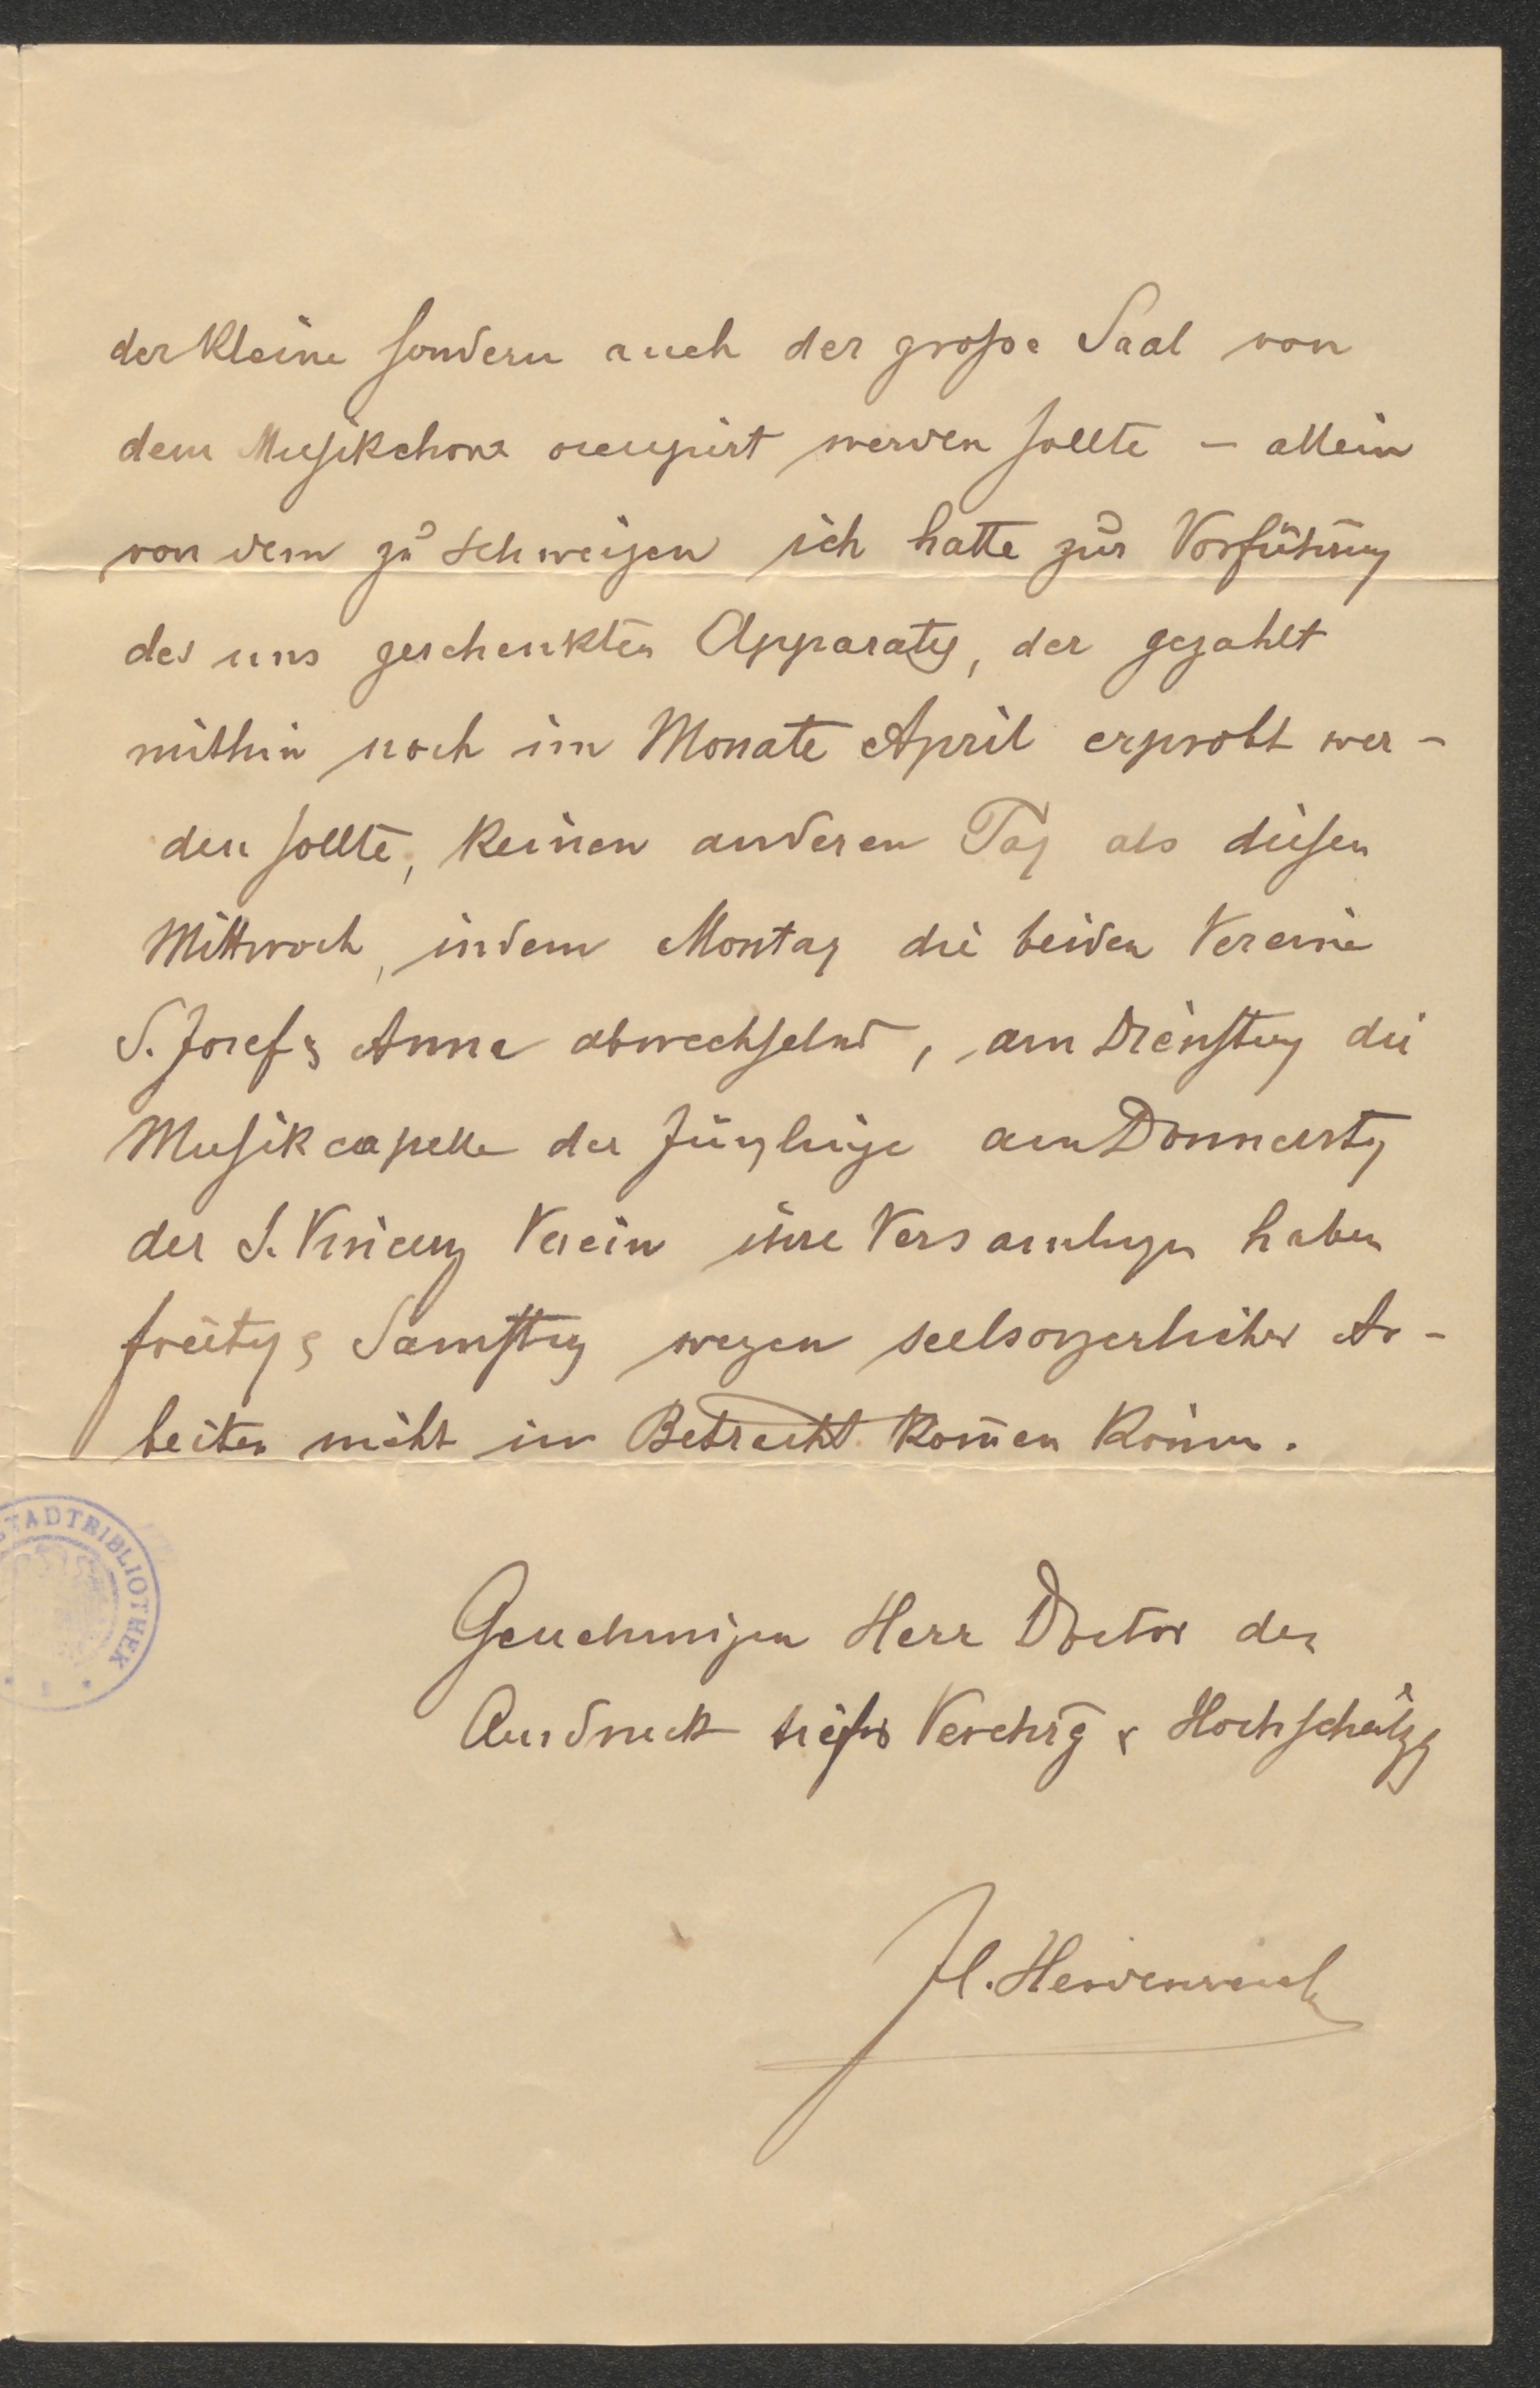 der kleine sondern auch der große Saal von
dem Musikchore occupirt werden sollte – allein
von dem zu schweigen ich hatte zur Vorführung
des uns geschenkten Apparates, der gezahlt
mithin noch im Monate April erprobt wer-
den sollte, keinen anderen Tag als diesen
Mittwoch, indem Montag die beiden Vereine
S. Josef & Anna abwechselnd, am Dienstag die
Musikcapelle der Jünglinge am Donnerstg
der S. Vincenz Verein ihre Versamlugen haben
freitg & Samstag wegen seelsorgerlicher Ar-
beiten nicht in Betracht kom̅en könn̅.
STADTBIBLIOTHEK
Genehmigen Herr Doctor den
Ausdruck tiefer Verehrg & Hochschätzg
H. Heidenreich